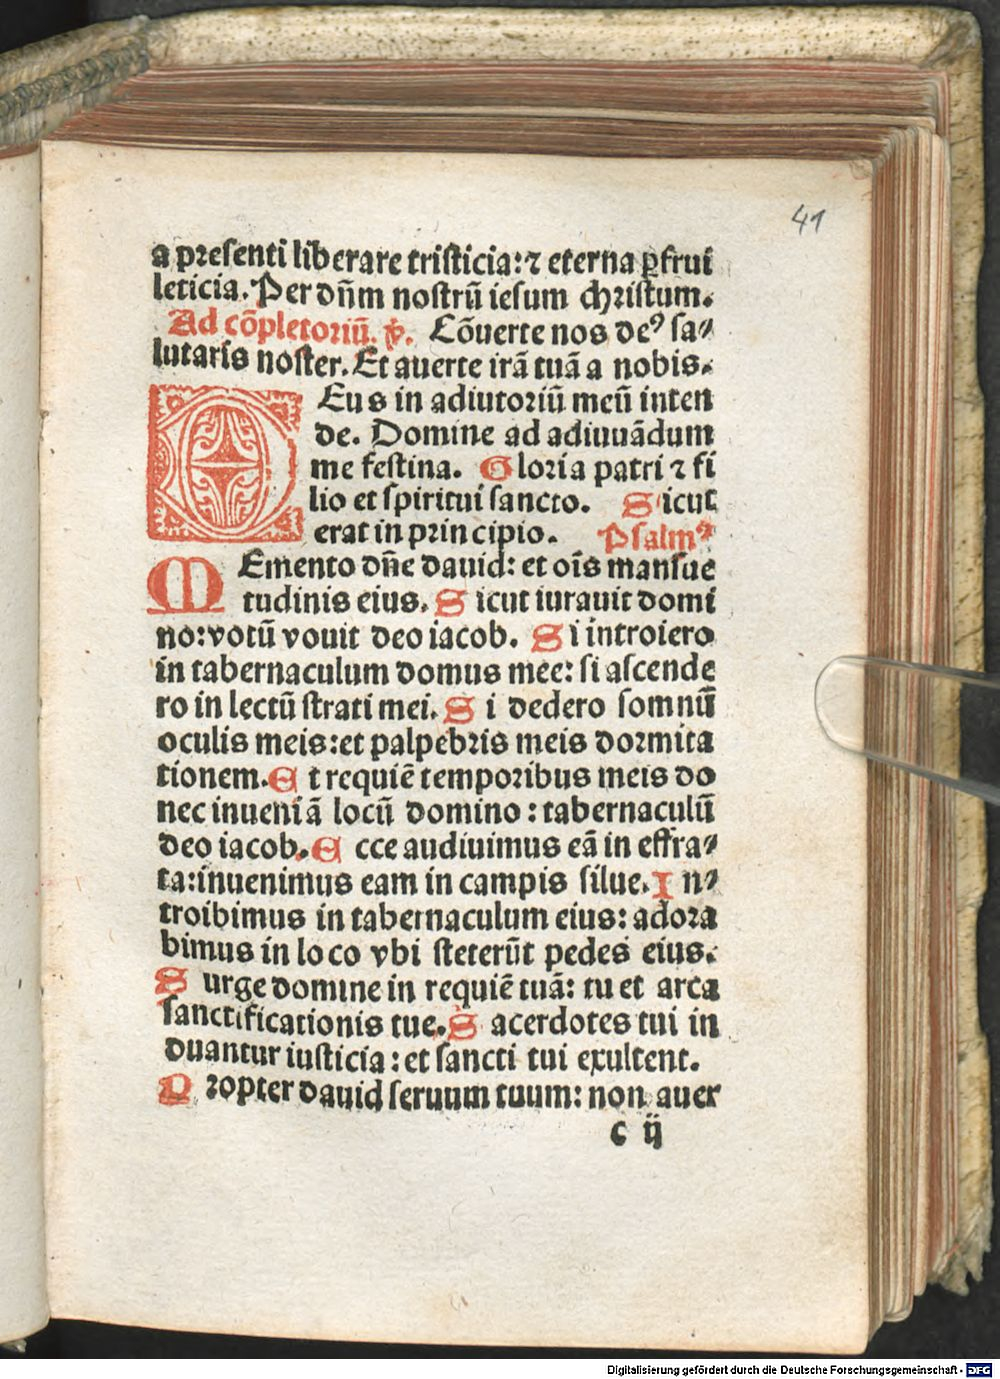 41
a presenti liberare tristicia: ⁊ eterna ꝑfrui
leticia. Per dn̄m nostrū iesum christum.
Ad cōpletoriū. ꝟ. Cōuerte nos deꝰ sa⸗
lutaris noster. Et auerte irā tuā a nobis.
DEus in adiutoriū meū inten
de. Domine ad adiuuādum
me festina. Gloria patri ⁊ fi
lio et spiritui sancto. Sicut
erat in principio. Psalmꝰ
MEmento dn̄e dauid: et oīs mansue
tudinis eius. Sicut iurauit domi
no: votū vouit deo iacob. Si introiero
in tabernaculum domus mee: si ascende
ro in lectū strati mei. Si dedero somnū
oculis meis: et palpebris meis dormita
tionem. Et requiē temporibus meis do
nec inueniā locū domino: tabernaculū
deo iacob. Ecce audiuimus eā in effra⸗
ta: inuenimus eam in campis silue. In⸗
troibimus in tabernaculum eius: adora
bimus in loco vbi steterūt pedes eius.
Surge domine in requiē tuā: tu et arca
sanctificationis tue. Sacerdotes tui in
duantur iusticia: et sancti tui exultent.
Propter dauid seruum tuum: non auer
c ij
Digitalisierung gefördert durch die Deutsche Forschungsgemeinschaft - DFG